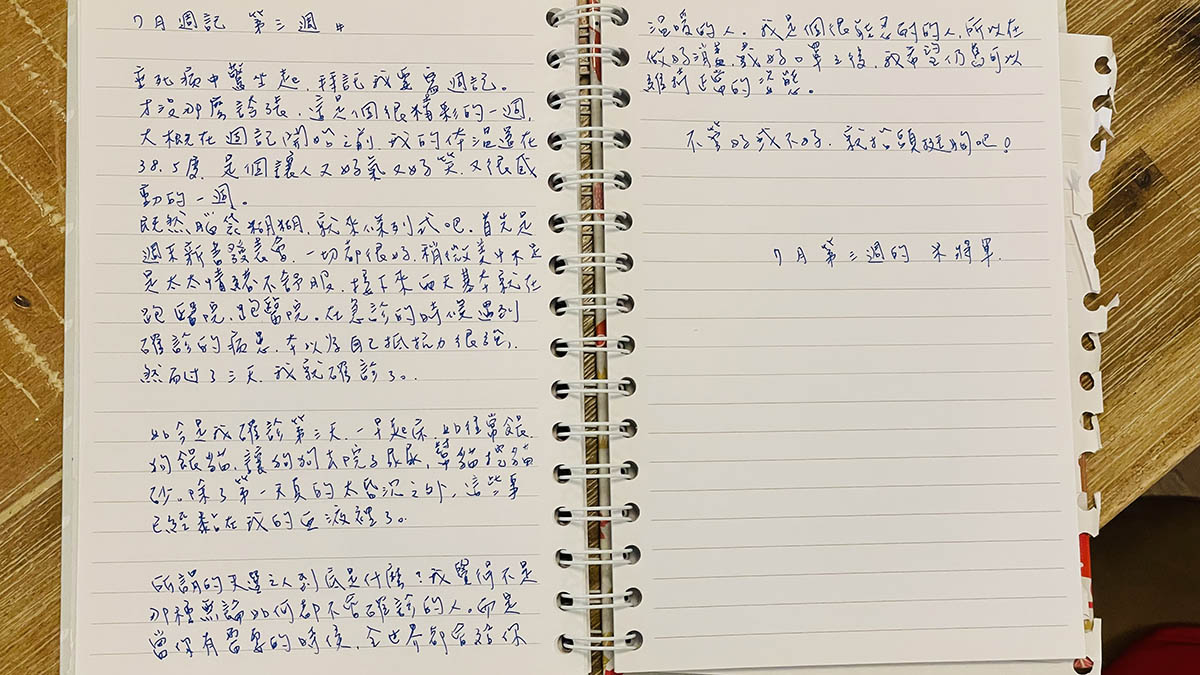 7月週記 第三週 #
垂死病中驚坐起,拜託我要寫週記。
才沒那麼誇張,這是個很精彩的一週,
大概在週記開始之前,我的体溫還在
38.5度,是個讓人又好氣又好笑,又很感
動的一週。
既然腦袋糊糊,就來條列式吧。首先是
週末新書發表會,一切都很好,稍微美中不足
是太太情緒不舒服,接下來两天基本就在
跑醫院,跑醫院。在急診的時候遇到
確診的病患,本以為自己抵抗力很強,
然而过了三天,我就確診了。
如今是我確診第三天,一早起床,如往常餵
狗餵貓,讓狗狗去院子尿尿,幫貓挖貓
砂。除了第一天真的太昏沉之外,這些事
已經黏在我的血液裡了。
所謂的天選之人到底是什麼?我覺得不是
那種無論如何都不會確診的人。而是
當你有需要的時候,全世界都會給你
溫暖的人。我是個很能忍耐的人,所以在
做好消毒,戴好口罩之後,我希望仍舊可以
維持正常的姿態。
不管好或不好,就抬頭挺胸吧!
7月第三週的 米將軍.